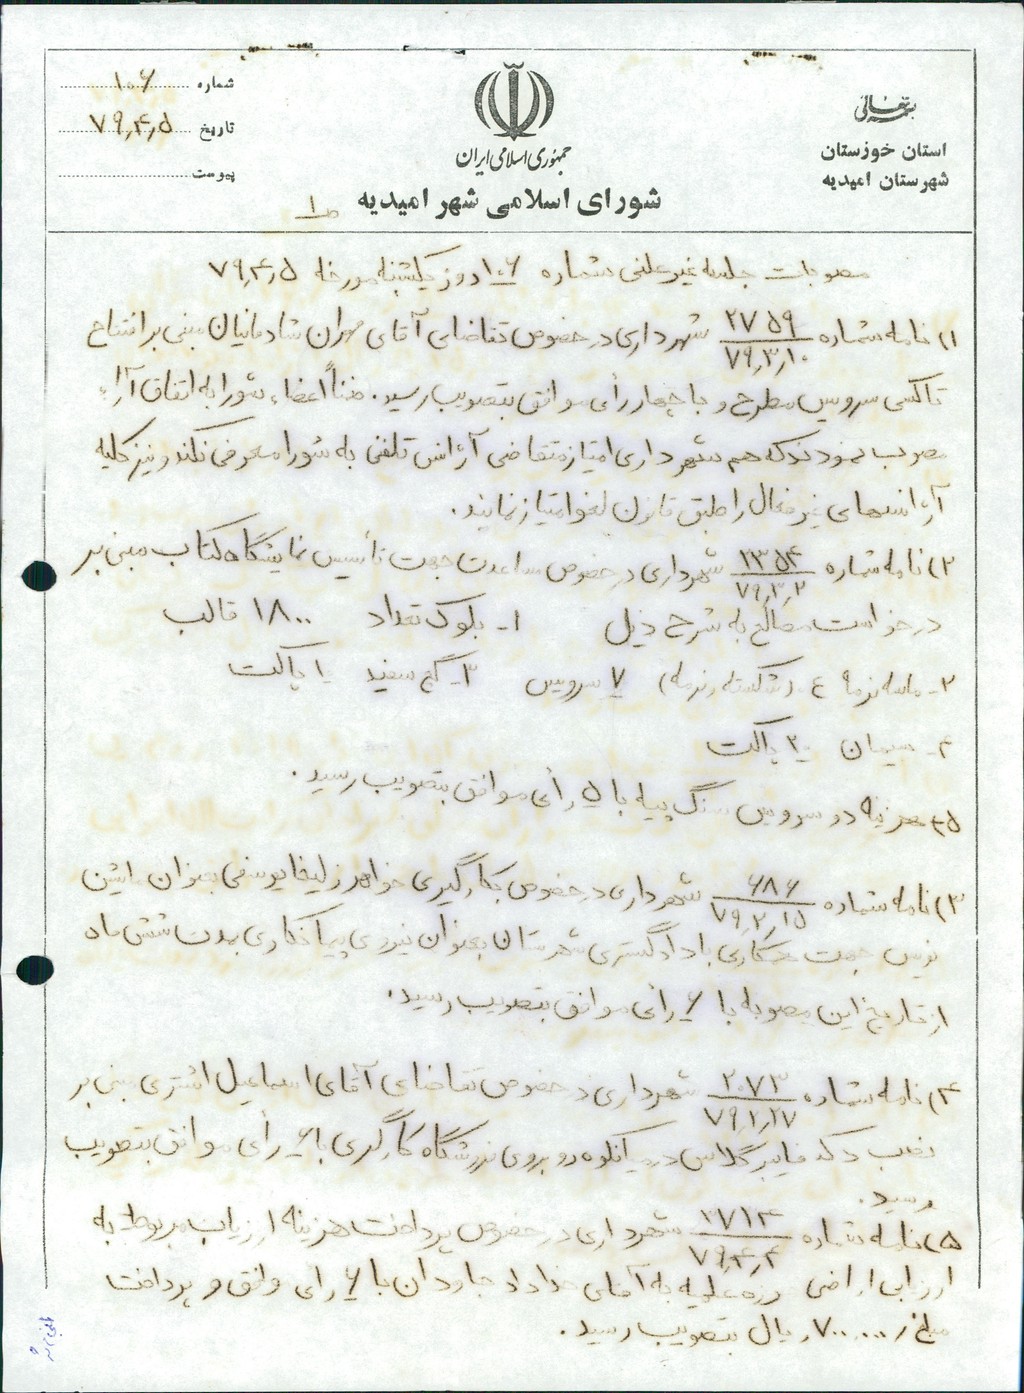 بسمه تعالی
استان خوزستان
شهرستان امیدیه
جمهوری اسلامی ایران
شورای اسلامی شهر امیدیه ص ۱
شماره ۱۰۶
تاریخ ۷۹٫۴٫۵
پیوست
مصوبات جلسه غیر علنی شماره ۱۰۶ روز یکشنبه مورخه ۷۹٫۴٫۵
۱) نامه شماره ۲۷۵۹ / ۷۹٫۳٫۱۰ شهرداری در خصوص تقاضای آقای مهران شادمانیان مبنی بر افتتاح
تاکسی سرویس مطرح و با چهار رأی موافق بتصویب رسید. ضمناً اعضاء شورا به اتفاق آراء
مصوب نمودند که هم شهرداری امتیاز متقاضی آژانس تلفنی به شورا معرفی نکند و نیز کلیه
آژانسهای غیر فعال را طبق قانون لغو امتیاز نمایند.
۲) نامه شماره ۲۳۵۴ / ۷۹٫۳٫۲ شهرداری در خصوص مساعدت جهت تأسیس نمایشگاه کتاب مبنی بر
درخواست مصالح به شرح ذیل ۱- بلوک تعداد ۱۸۰۰ قالب
۲- ماسه نرمه (شکسته نرمه) ۷ سرویس ۳- گچ سفید ۱۰ پاکت
۴- سیمان ۲۰ پاکت
۵- هزینه دو سرویس سنگ پیه با ۵ رأی موافق بتصویب رسید.
۳) نامه شماره ۶۸۶ / ۷۹٫۲٫۱۵ شهرداری در خصوص بکارگیری خواهر زلیخا یوسفی بعنوان ماشین
نویس جهت همکاری با دادگستری شهرستان بعنوان نیروی پیمانکاری بمدت شش ماه
از تاریخ این مصوبه با ۶ رأی موافق بتصویب رسید.
۴) نامه شماره ۲۰۷۳ / ۷۹٫۱٫۲۷ شهرداری در خصوص تقاضای آقای اسماعیل اشتری مبنی بر
نصب دکه فایبرگلاس در میانکوه روبروی فروشگاه کارگری با ۶ رأی موافق بتصویب
رسید.
۵) نامه شماره ۳۷۱۴ / ۷۹٫۴٫۴ شهرداری در خصوص پرداخت هزینه ارزیاب مربوط به
ارزیابی اراضی حوزه علمیه به آقای خداداد جاودان با ۶ رأی موافق و پرداخت
مبلغ ۷۰۰٫۰۰۰ ریال بتصویب رسید.